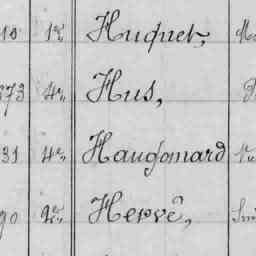 10 1re Huquet,
373 4e, Hus,
31 4e, Haugomard
90 2e, Hervé,